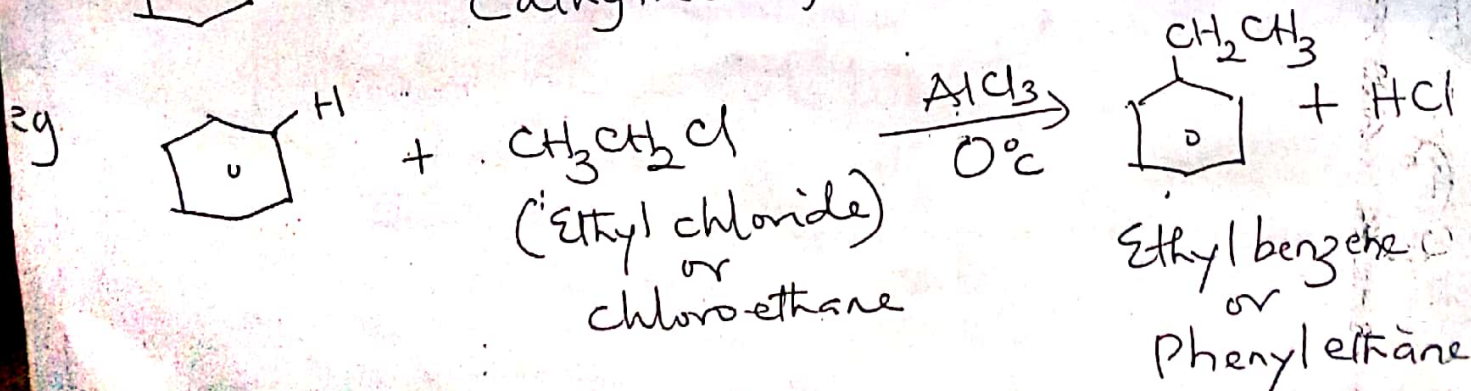 CH₂CH₃
eg H + CH₃CH₂Cl AlCl₃ + HCl
0°C
(Ethyl chloride)
or
chloroethane
Ethyl benzene
or
Phenyl ethane